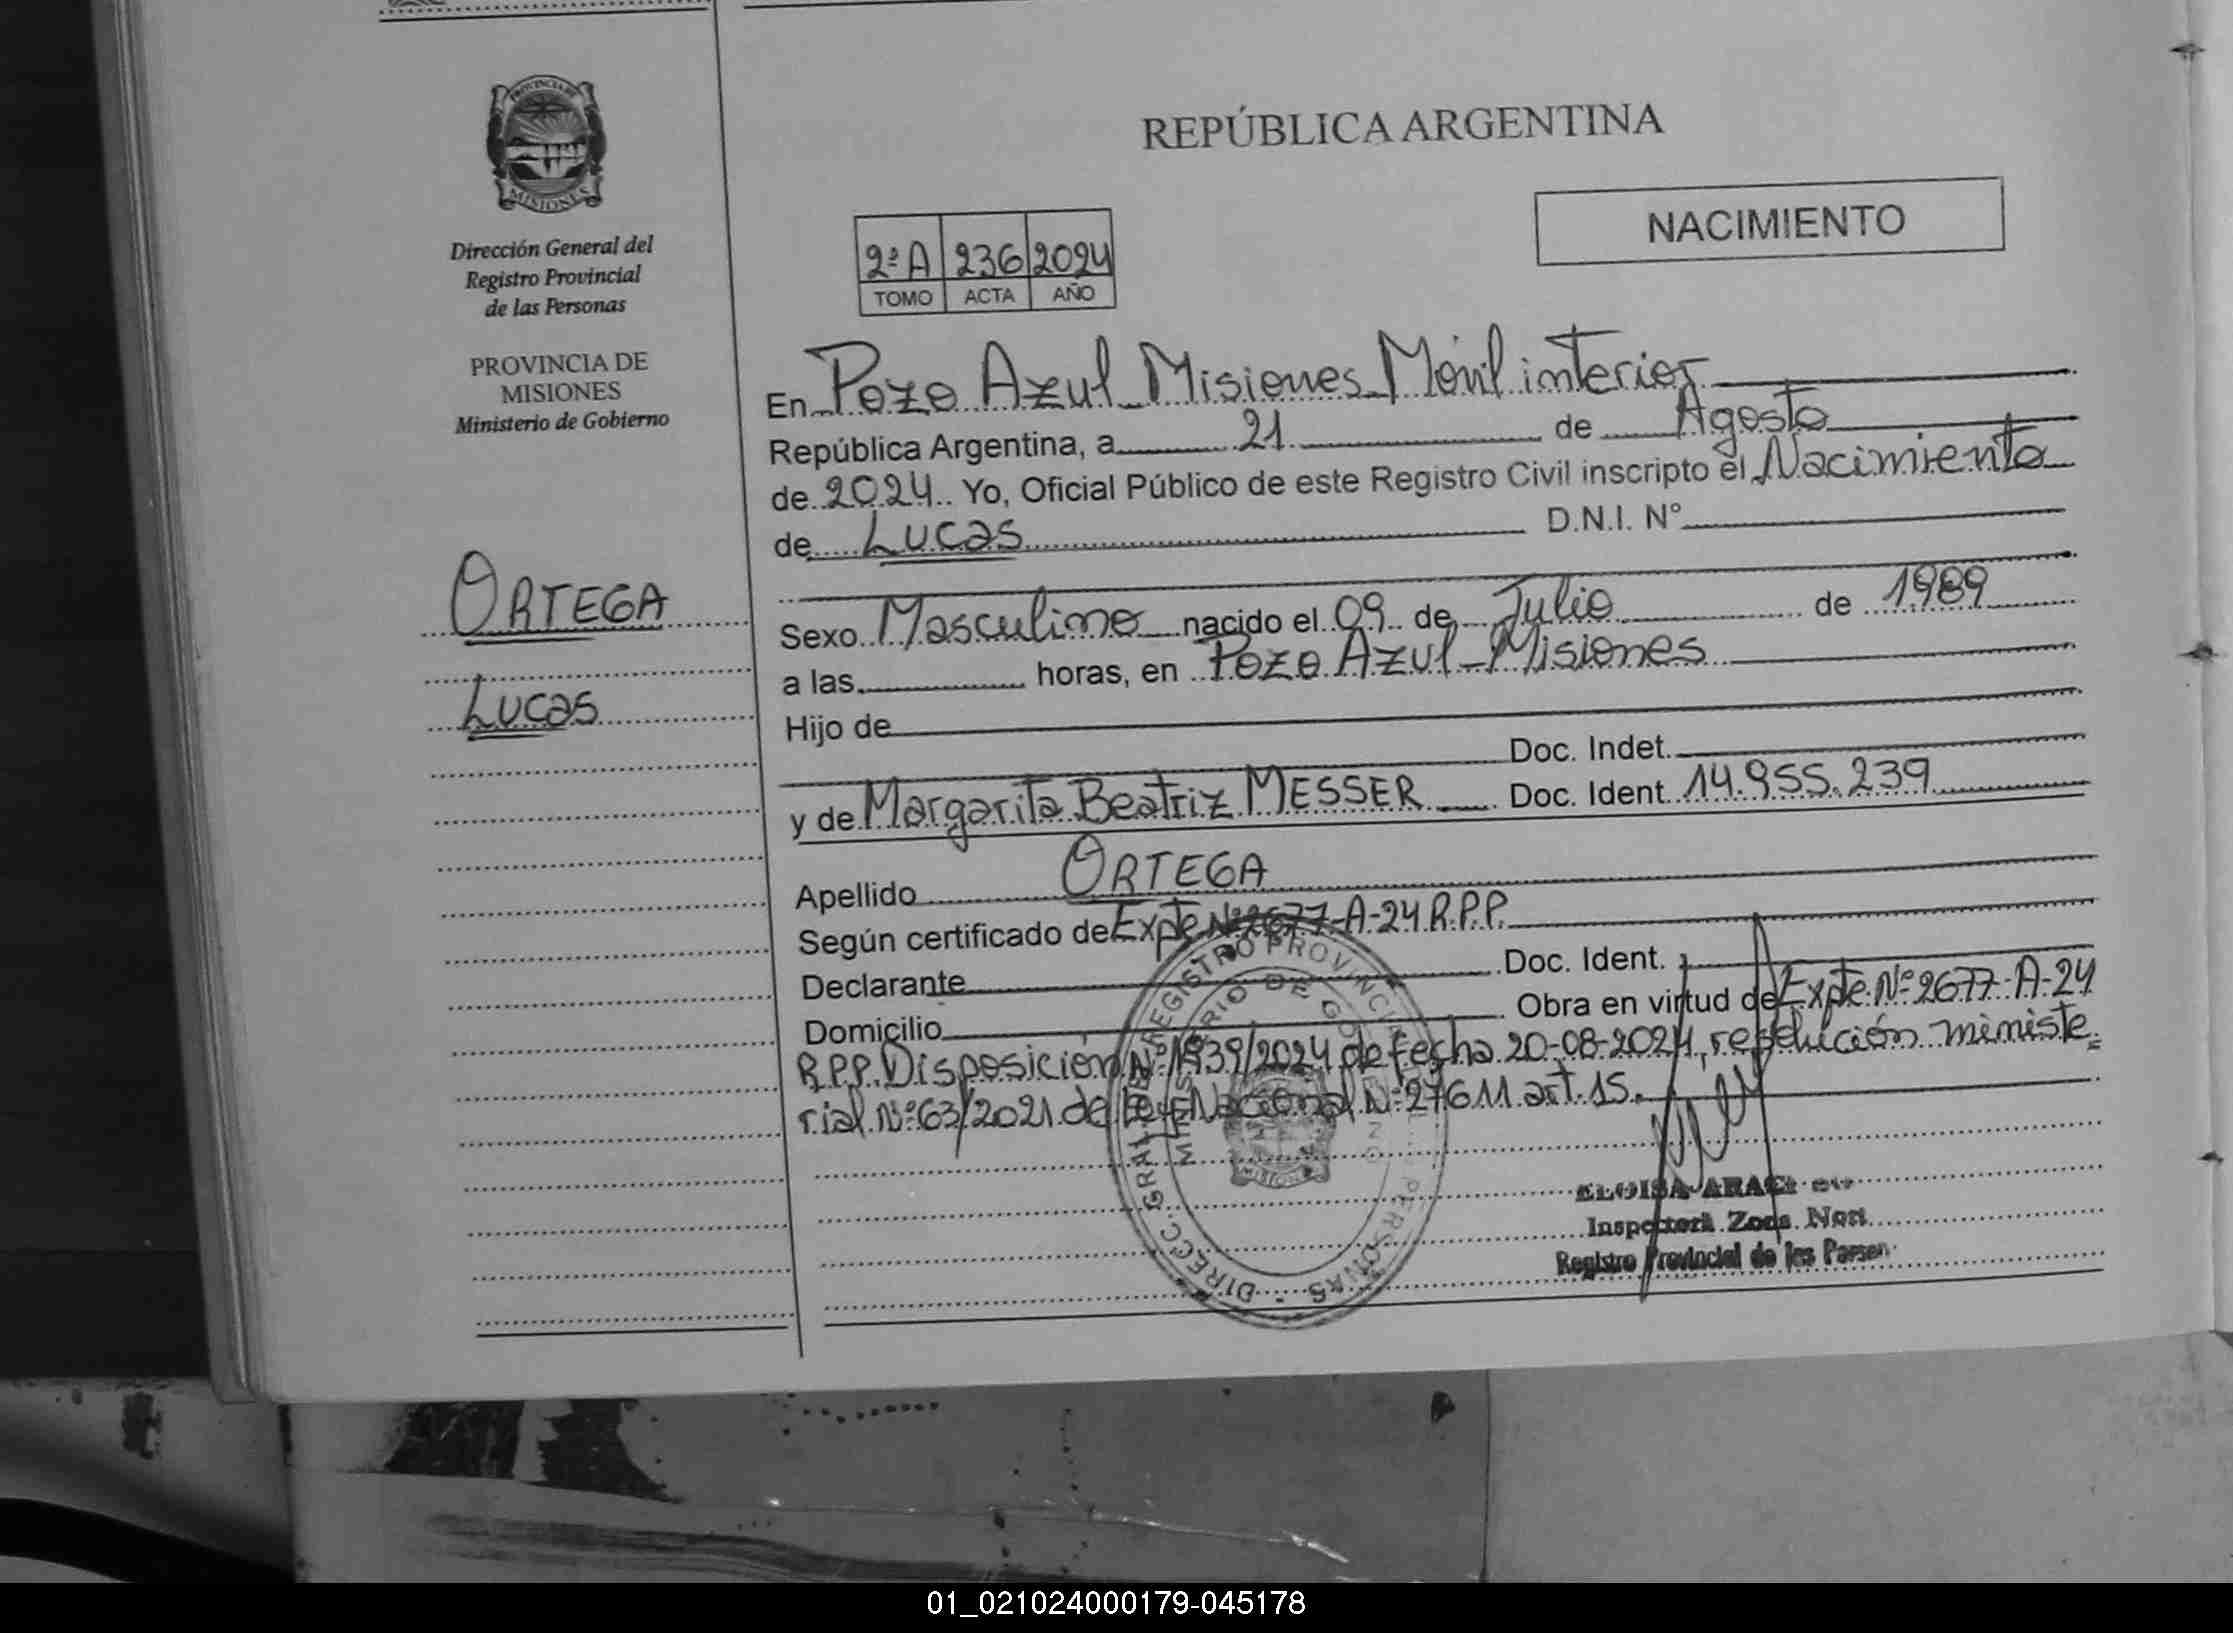 PROVINCIA DE
MISIONES
Dirección General del
Registro Provincial
de las Personas
PROVINCIA DE
MISIONES
Ministerio de Gobierno
ORTEGA
Lucas
REPÚBLICA ARGENTINA
NACIMIENTO
2º A 236 2024
TOMO ACTA AÑO
En Pozo Azul Misiones Móvil interior
República Argentina, a 21 de Agosto
de 2024 Yo, Oficial Público de este Registro Civil inscripto el Nacimiento
de Lucas D.N.I. N°
Sexo Masculino nacido el 09 de Julio de 1989
a las horas, en Pozo Azul - Misiones
Hijo de
Doc. Indet.
y de Margarita Beatriz MESSER Doc. Ident. 14.955.239
Apellido ORTEGA
Según certificado de Expte Nº 2677-A-24 R.P.P.
Declarante Doc. Ident.
Domicilio Obra en virtud de Expte. Nº 2677-A-24
R.P.P. Disposición Nº 1939/2024 de fecha 20-08-2024, resolución ministe=
rial Nº 63/2021 de Ley Nacional Nº 27611 art. 15.
DIRECC. GRAL. DEL REGISTRO PROVINCIAL PERSONAS
MINISTERIO DE GOBIERNO
MISIONES
ELOISA
Inspectora Zona
Registro Provincial de las
01_021024000179-045178